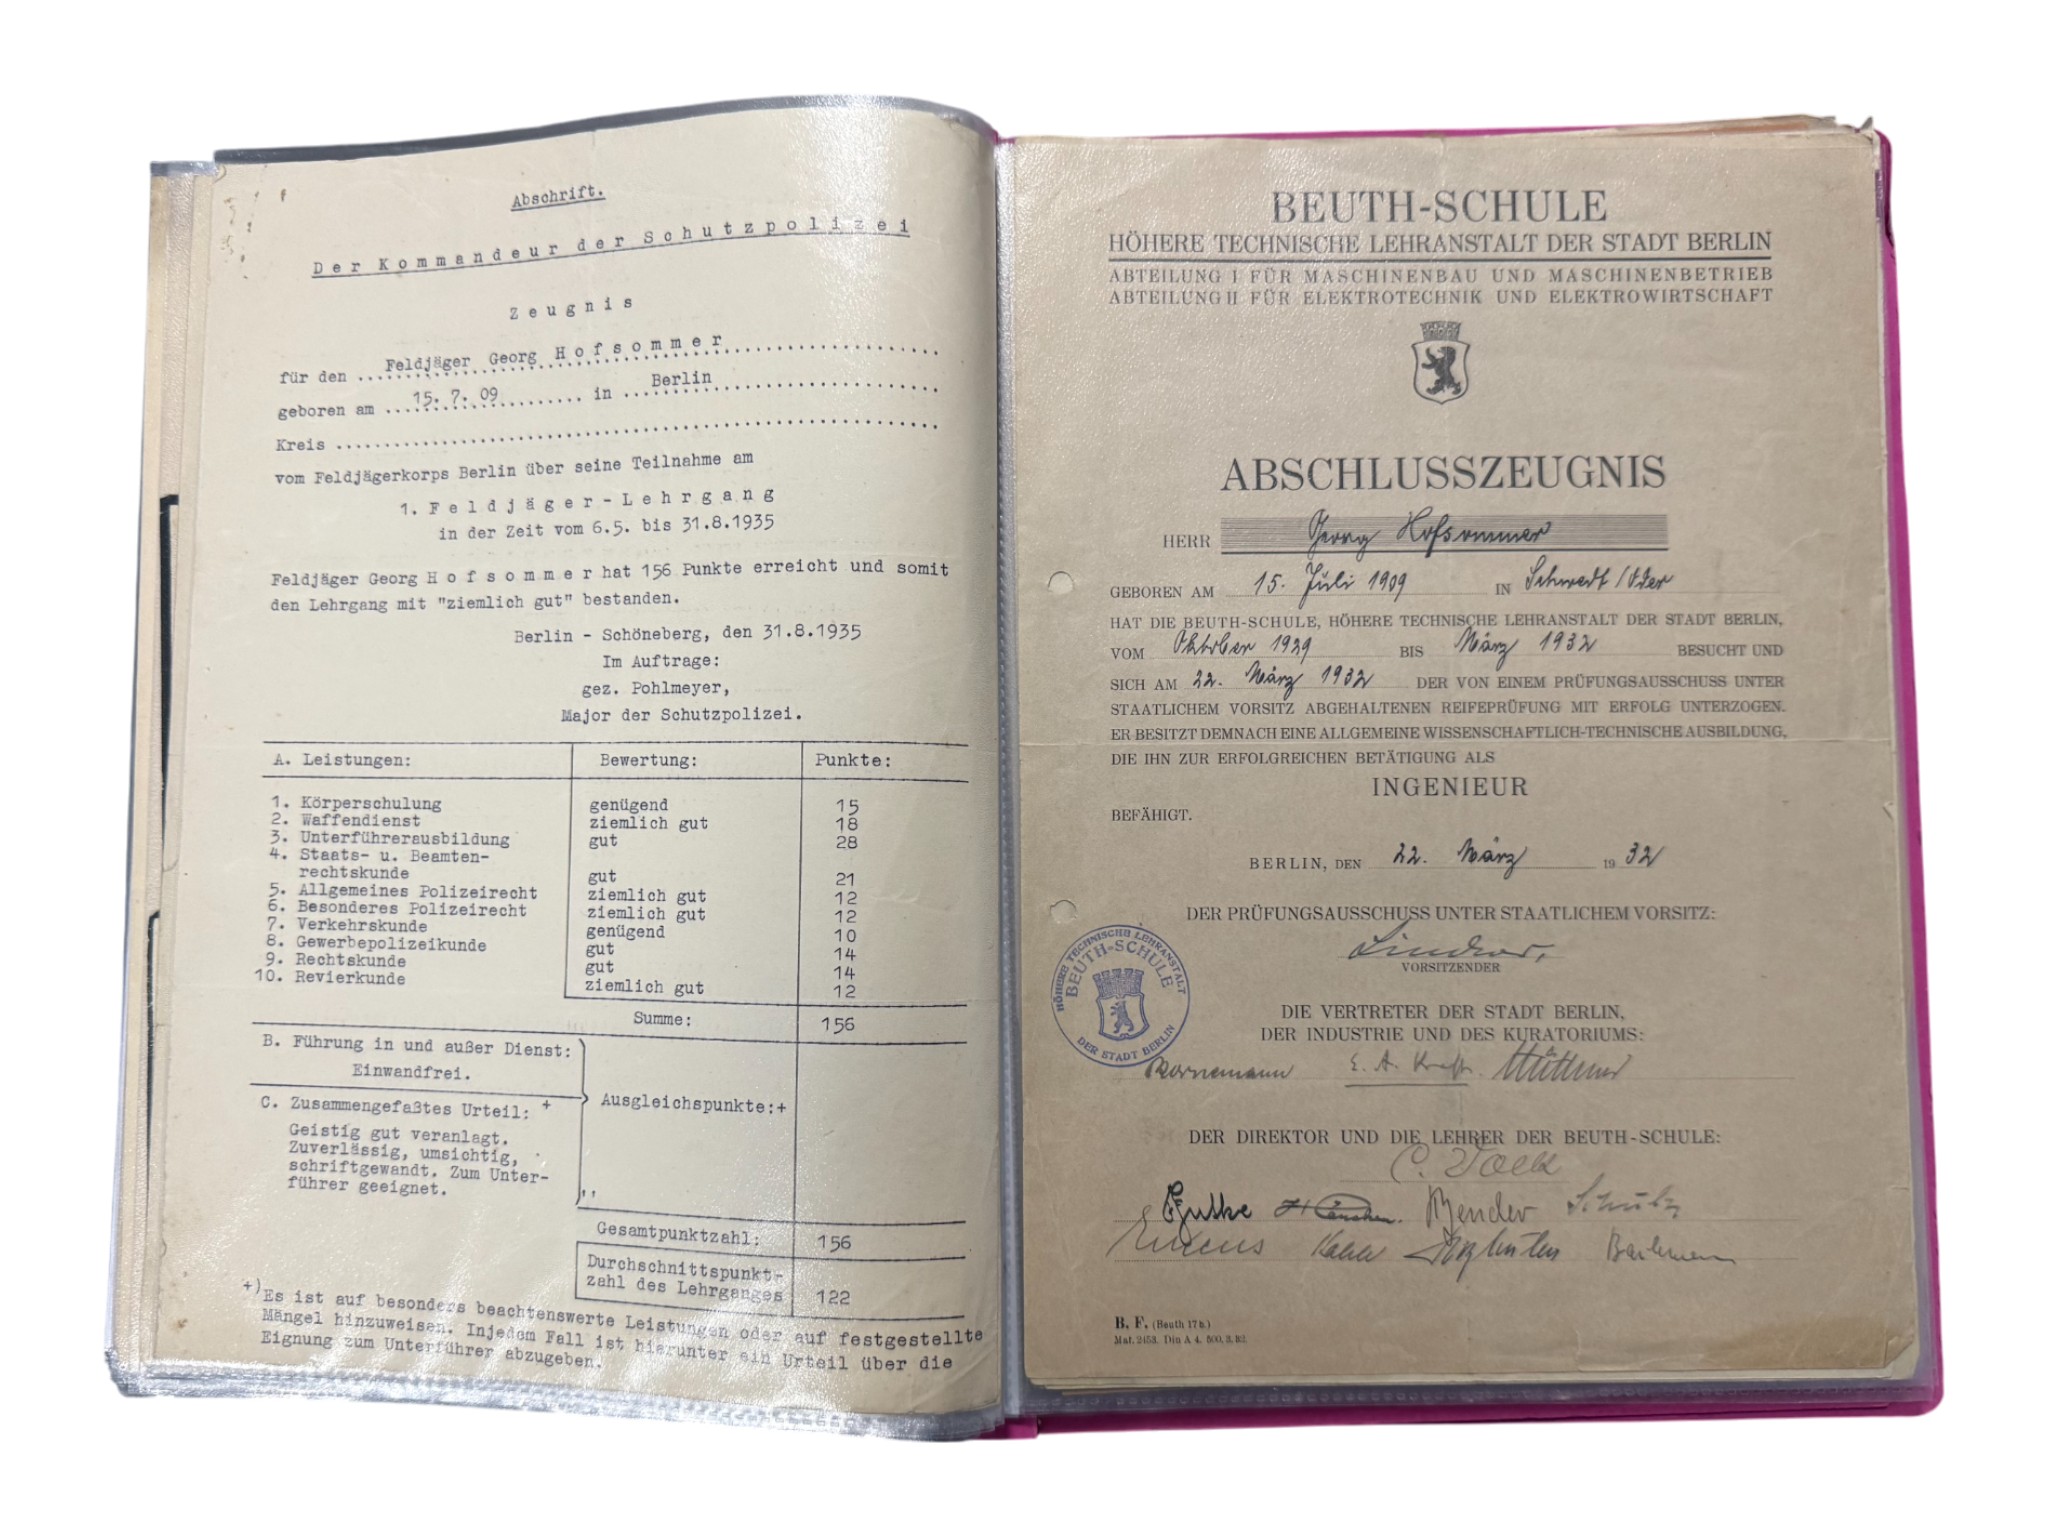 Abschrift.
Der Kommandeur der Schutzpolizei
Zeugnis
für den Feldjäger Georg Hofsommer
geboren am 15. 7. 09 in Berlin
Kreis
vom Feldjägerkorps Berlin über seine Teilnahme am
1. Feldjäger-Lehrgang
in der Zeit vom 6.5. bis 31.8.1935
Feldjäger Georg Hofsommer hat 156 Punkte erreicht und somit
den Lehrgang mit "ziemlich gut" bestanden.
Berlin - Schöneberg, den 31.8.1935
Im Auftrage:
gez. Pohlmeyer,
Major der Schutzpolizei.
A. Leistungen: Bewertung: Punkte:
1. Körperschulung genügend 15
2. Waffendienst ziemlich gut 18
3. Unterführerausbildung gut 28
4. Staats- u. Beamten-
rechtskunde gut 21
5. Allgemeines Polizeirecht ziemlich gut 12
6. Besonderes Polizeirecht ziemlich gut 12
7. Verkehrskunde genügend 10
8. Gewerbepolizeikunde gut 14
9. Rechtskunde gut 14
10. Revierkunde ziemlich gut 12
Summe: 156
B. Führung in und außer Dienst:
Einwandfrei.
Ausgleichspunkte:+
C. Zusammengefaßtes Urteil: +
Geistig gut veranlagt.
Zuverlässig, umsichtig,
schriftgewandt. Zum Unter-
führer geeignet.
Gesamtpunktzahl: 156
Durchschnittspunkt-
zahl des Lehrganges 122
+) Es ist auf besonders beachtenswerte Leistungen oder auf festgestellte
Mängel hinzuweisen. Injedem Fall ist hierunter ein Urteil über die
Eignung zum Unterführer abzugeben.
BEUTH-SCHULE
HÖHERE TECHNISCHE LEHRANSTALT DER STADT BERLIN
ABTEILUNG I FÜR MASCHINENBAU UND MASCHINENBETRIEB
ABTEILUNG II FÜR ELEKTROTECHNIK UND ELEKTROWIRTSCHAFT
ABSCHLUSSZEUGNIS
HERR Georg Hofsommer
GEBOREN AM 15. Juli 1909 IN Schwedt/Oder
HAT DIE BEUTH-SCHULE, HÖHERE TECHNISCHE LEHRANSTALT DER STADT BERLIN,
VOM Oktober 1929 BIS März 1932 BESUCHT UND
SICH AM 22. März 1932 DER VON EINEM PRÜFUNGSAUSSCHUSS UNTER
STAATLICHEM VORSITZ ABGEHALTENEN REIFEPRÜFUNG MIT ERFOLG UNTERZOGEN.
ER BESITZT DEMNACH EINE ALLGEMEINE WISSENSCHAFTLICH-TECHNISCHE AUSBILDUNG,
DIE IHN ZUR ERFOLGREICHEN BETÄTIGUNG ALS
INGENIEUR
BEFÄHIGT.
BERLIN, DEN 22. März 1932
DER PRÜFUNGSAUSSCHUSS UNTER STAATLICHEM VORSITZ:
VORSITZENDER
HÖHERE TECHNISCHE LEHRANSTALT
BEUTH-SCHULE
DER STADT BERLIN
DIE VERTRETER DER STADT BERLIN,
DER INDUSTRIE UND DES KURATORIUMS:
Bornemann E. A. Kraft.
DER DIREKTOR UND DIE LEHRER DER BEUTH-SCHULE:
Schulz
B. F. (Beuth 17b.)
Mat. 2453. Din A 4. 500. 3. 32.